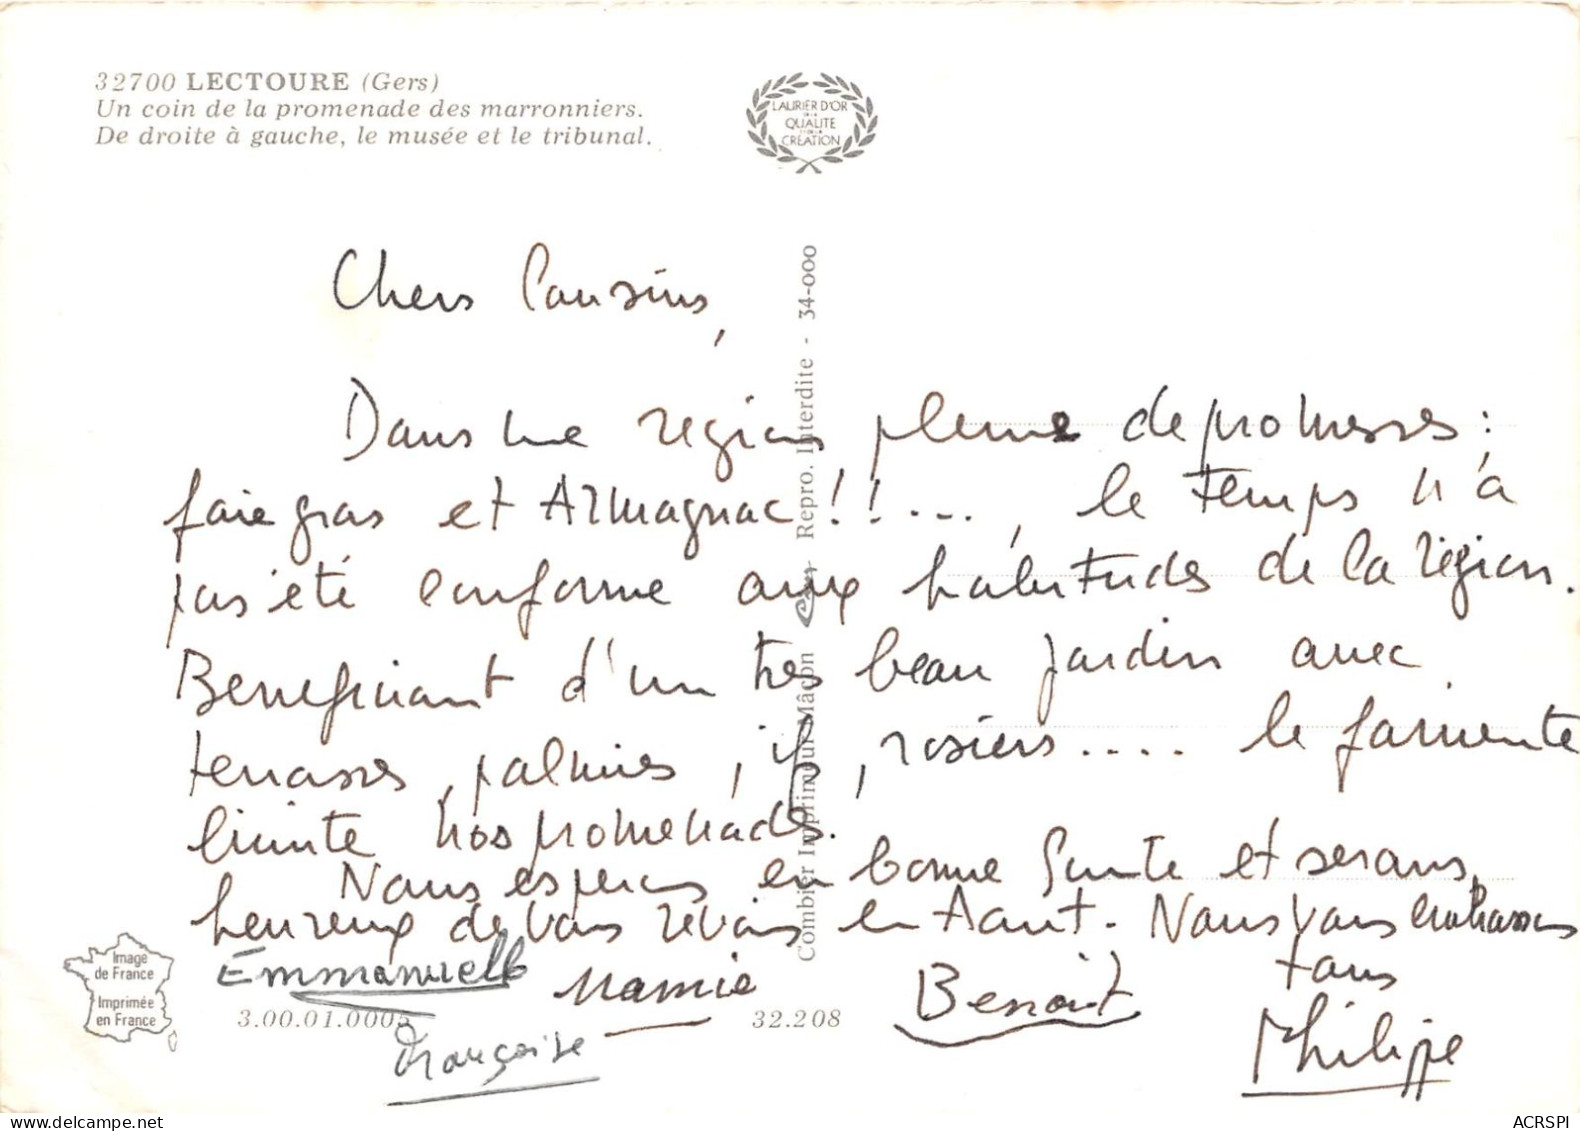 32700 LECTOURE (Gers)
Un coin de la promenade des marronniers.
De droite à gauche, le musée et le tribunal.
LAURIER D'OR
DE LA
QUALITE
ET DE LA
CRÉATION
Combier Imprimeur Mâcon Repro. Interdite - 34-000
Chers Cousins,
Dans une region pleine de promesses :
foie gras et Armagnac !! ...., le temps n'a
pas été conforme aux habitudes de la région.
Beneficiant d'un tres beau jardin avec
terrasses, palmiers, ifs, rosiers.... le farniente
limite nos promenades.
Nous esperons en bonne Sante et serons
heureux de vous revoir en Aout. Nous vous embrassons
tous
Emmanuelle Mamie Benoit Philippe
Françoise
Image
de France
Imprimée
en France
3.00.01.0005 32.208
ACRSPI
delcampe.net